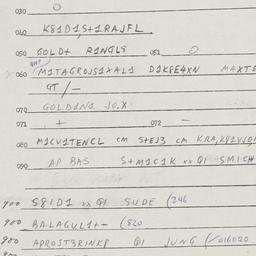 030 O
040 K81D1S+1RAJFL
050 GOLD+ R1NGL8 051 O
060 M1TAGROJS1XAL1 D1K8E4XN MAXTE
GT/-
070 GOLD1N1 JO,X
071 + 072 -
080 M1CV1TENCL cm S+EJ3 cm KRA,K81VJO1
090 AP BAS S+M1C1K xx G1 SM1CH
900 S81D1 xx G1 SUDE (246
900 BALAGUL1+- (820
900 APROST3R1NKP G1 JUNG (/016020